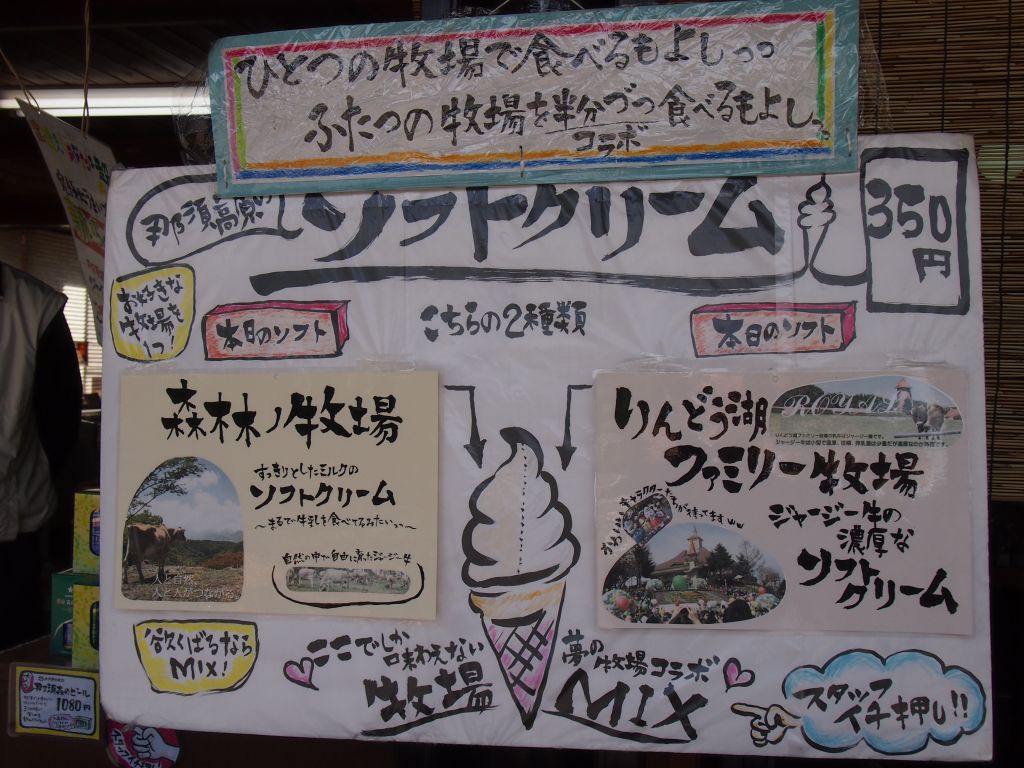 ひとつの牧場で食べるもよしっっ
ふたつの牧場を半分づつ食べるもよしっ
コラボ
那須高原の
ソフトクリーム
350
円
お好きな
牧場を
1つ!
本日のソフト
こちらの2種類
本日のソフト
森林ノ牧場
すっきりとしたミルクの
ソフトクリーム
~まるで牛乳を食べてるみたいっっ~
自然の中で自由に育ったジャージー牛
人と自然、
人と人がつながる。
りんどう湖
ファミリー牧場
ROYAL
ジャージー牛の
濃厚な
ソフト
クリーム
欲ばるなら
MIX!
ここでしか
味わえない
牧場
夢の
牧場コラボ
MIX
スタッフ
イチ押し!!
那須森のビール
1080円